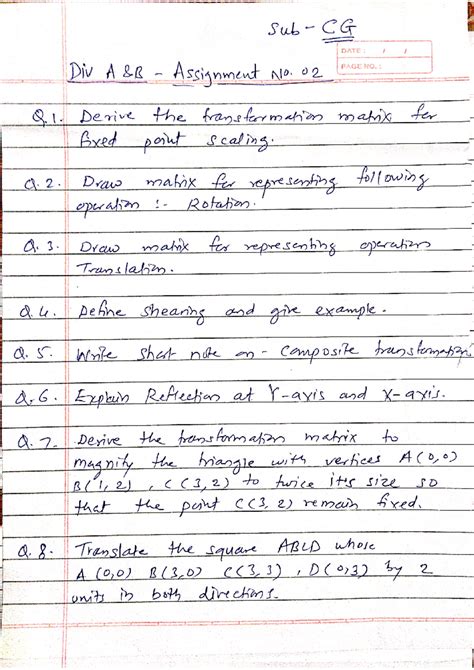 Sub - CG
DATE : / /
PAGE NO. :
Div A & B - Assignment No. 02
Q.1. Derive the transformation matrix for
fixed point scaling.
Q.2. Draw matrix for representing following
operation :- Rotation.
Q.3. Draw matrix for representing operation
Translation.
Q.4. Define shearing and give example.
Q.5. Write short note on - Composite transformation.
Q.6. Explain Reflection at Y-axis and X-axis.
Q.7. Derive the transformation matrix to
magnify the triangle with vertices A(0,0)
B(1,2), C(3,2) to twice it's size so
that the point C(3,2) remain fixed.
Q.8. Translate the square ABCD whose
A (0,0) B(3,0) C(3,3), D(0,3) by 2
units in both directions.